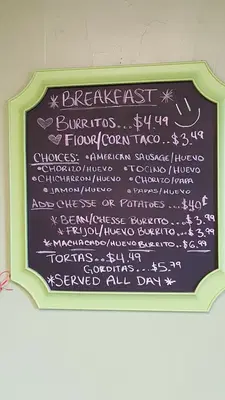 *BREAKFAST*
BURRITOS...$4.49
FlOUR/CORN TACO..$3.49
CHOICES: •AMERICAN SAUSAGE/HUEVO
•CHORIZO/HUEVO •TOCINO/HUEVO
•CHICHARRON/HUEVO •CHORIZO/PAPA
•JAMON/HUEVO •PAPAS/HUEVO
ADD CHESSE OR POTATOES...$.40¢
*BEAN/CHESSE BURRITO...$3.99
*FRIJOL/HUEVO BURRITO..$3.99
*MACHACADO/HUEVO BURRITO..$6.99
TORTAS..$4.49
GORDITAS...$5.79
*SERVED ALL DAY*